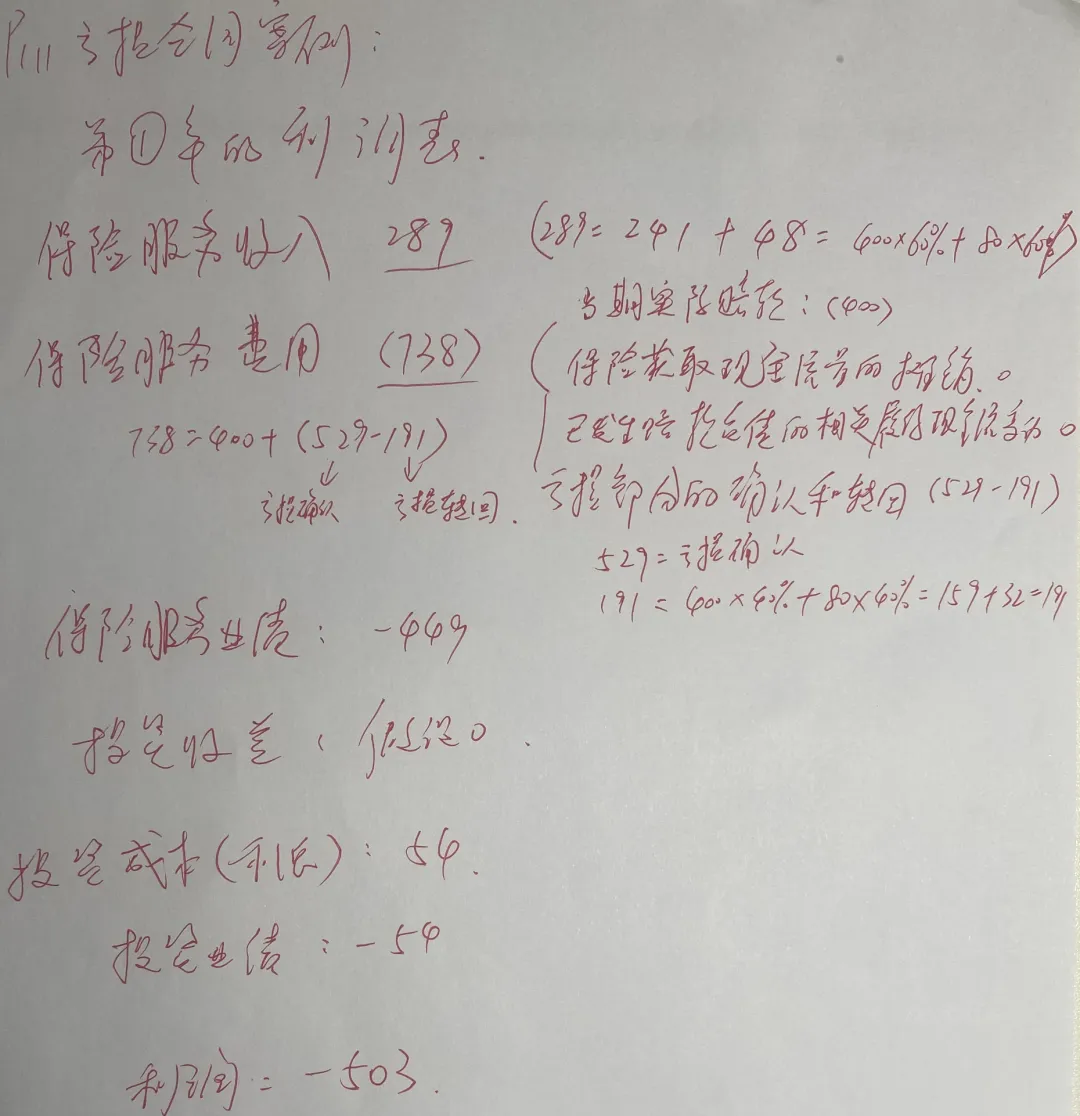 P111 亏损合同案例：
第①年的利润表.
保险服务收入 289 (289=241+48=400×60%+80×60%)
当期实际赔款：(400)
保险服务费用 (738)
保险获取现金流量的摊销.0
738=400+(529-191)
已发生赔款负债的相关履约现金流量为0
亏损确认 亏损转回.
亏损部分的确认和转回(529-191)
529=亏损确认
191=400×40%+80×40%=159+32=191
保险服务业绩：-449
投资收益：假设0.
投资成本(利息)：54.
投资业绩：-54
利润=-503.